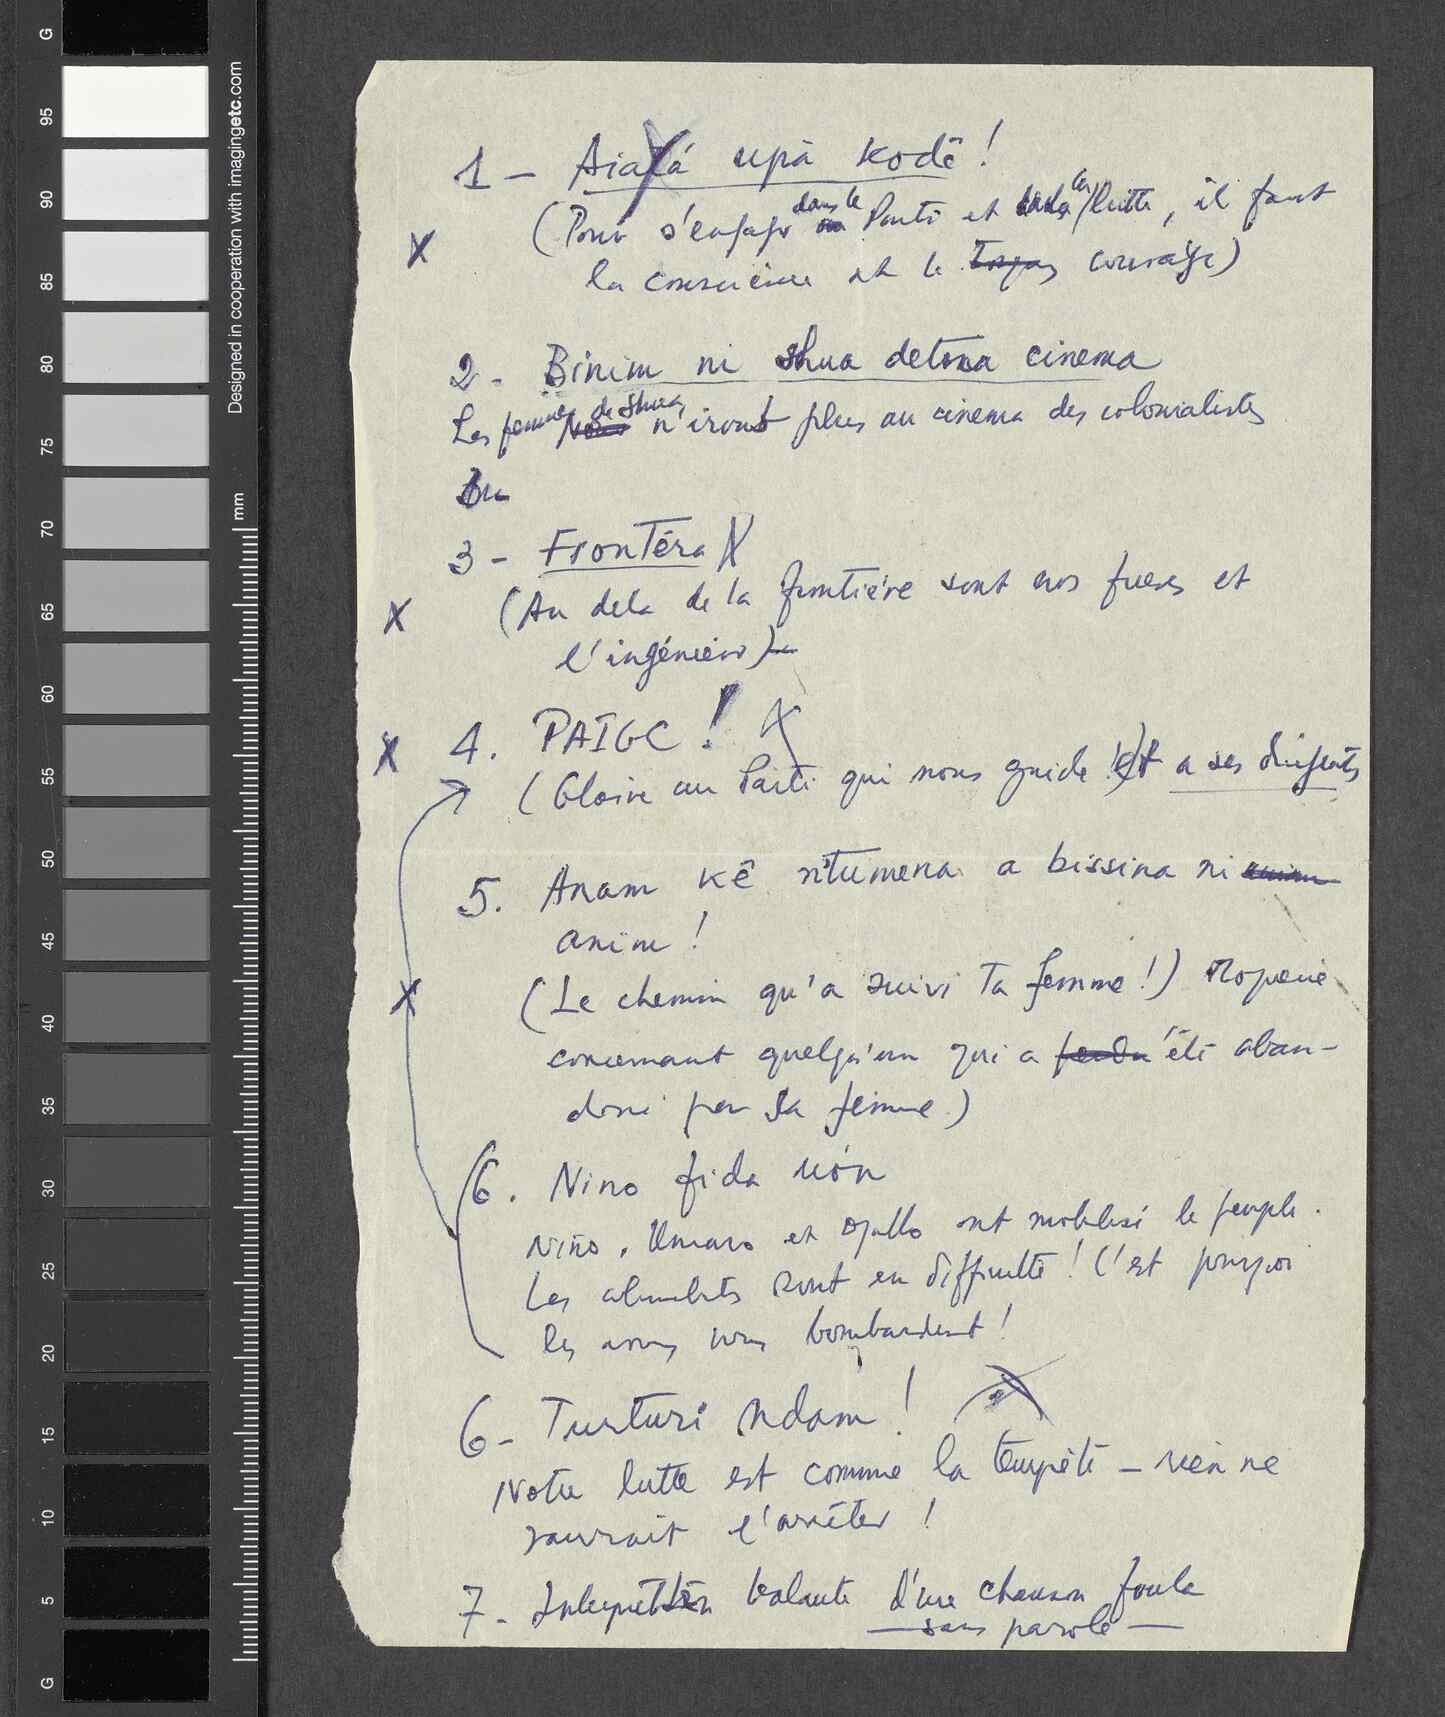 G
95
90
85
80
75
70
65
60
55
50
45
40
35
30
25
20
15
10
5
G
Designed in cooperation with imagingetc.com
mm
1 - Aiatá upà Kodê !
(Pour s'engager dans le Parti et la lutte, il faut
la conscience et le courage)
X
2 - Binim ni Shua detona cinema
Les femmes de Shua n'iront plus au cinema des colonialistes
3 - Frontéra X
X (Au dela de la frontière sont nos freres et
l'ingénieur)
X 4. PAIGC ! X
(Gloire au Parti qui nous guide et a ses dirigeants
5. Anam Kê n'tumena a bissina ni
anim !
X (Le chemin qu'a suivi Ta femme !)
concernant quelqu'un qui a été aban-
donné par sa femme)
6. Nino fida uón
Niño, Umaro et Djallo ont mobilisé le peuple.
Les sont en difficulté ! C'est pourquoi
les nous bombardent !
6 - Turturi Ndam ! X
Notre lutte est comme la tempête - rien ne
saurait l'arrêter !
7 - d'une chanson foula
- sans parole -